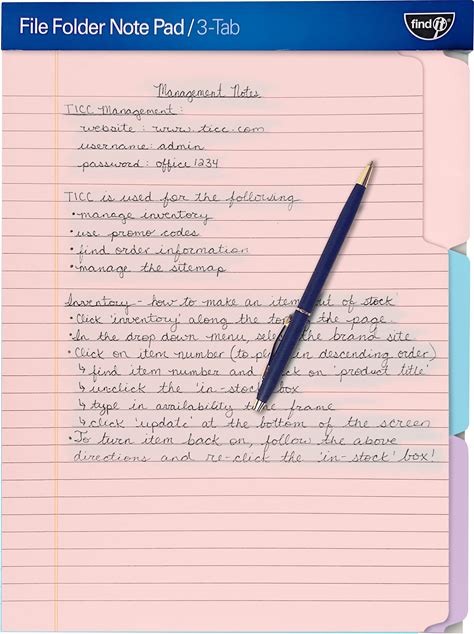 File Folder Note Pad / 3-Tab
find it
Management Notes
TICC Management:
website: www.ticc.com
username: admin
password: office1234
TICC is used for the following
• manage inventory
• use promo codes
• find order information
• manage the sitemap
Inventory - how to make an item out of stock
• Click 'inventory' along the top of the page
• In the drop down menu, select the brand site
• Click on item number (to in descending order)
↳ find item number and click on 'product title'
↳ unclick the 'in-stock' box
↳ type in availability time frame
↳ click 'update' at the bottom of the screen
• To turn item back on, follow the above
directions and re-click the 'in-stock' box!